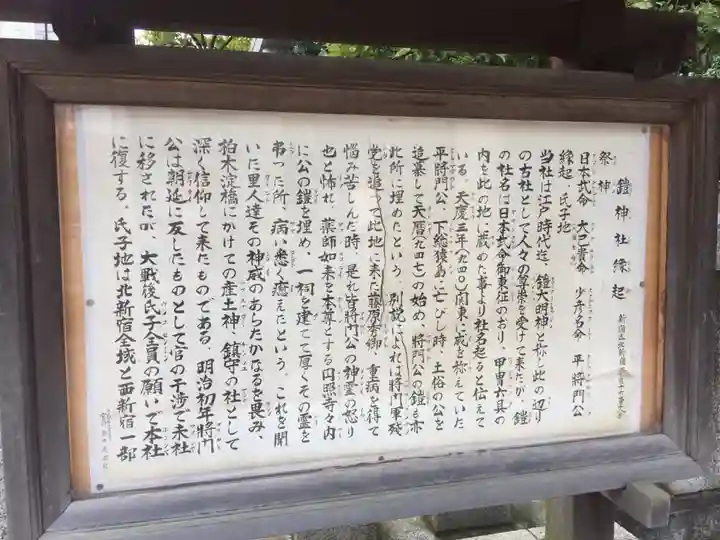 鎧神社縁起
祭神
日本武命 大己貴命 少彦名命 平將門公
縁起・氏子地
当社は江戸時代迄、鎧大明神と称し此の辺り
の古社として人々の尊崇を受けて来たが、鎧
の社名は日本武命御東征のおり、甲冑六具の
内を此の地に蔵めた事より社名起ると伝えて
いる。天慶三年(九四〇)関東に威を称えていた
平將門公、下総猿島に亡びし時、土俗の公を
追慕して天暦(九四七)の始め、將門公の鎧も亦
此所に埋めたという。別説によれば將門軍残
党を追って此地に来た藤原秀郷、重病を得て
悩み苦しんだ時、是れ皆將門公の神霊の怒り
也と怖れ、薬師如来を本尊とする円照寺々内
に公の鎧を埋め、一祠を建てて厚くその霊を
弔った所、病い悉く癒えたという。これを聞
いた里人達その神威のあらたかなるを畏み、
柏木淀橋にかけての産土神、鎮守の社として
深く信仰して来たものである。明治初年將門
公は朝廷に反したものとして官の干渉で末社
に移されたが、大戦後氏子全員の願いで本社
に復する。氏子地は北新宿全域と西新宿一部